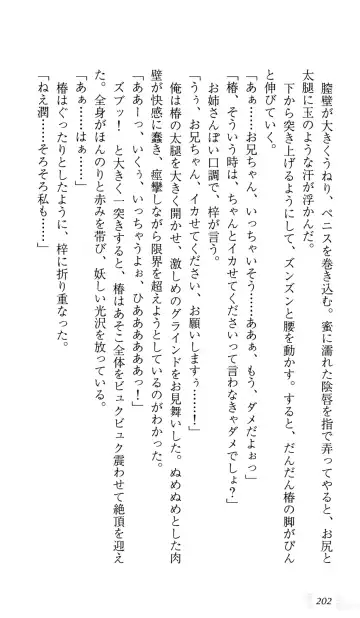 膣壁が大きくうねり、ペニスを巻き込む。蜜に濡れた陰唇を指で弄ってやると、お尻と
太腿に玉のような汗が浮かんだ。
下から突き上げるようにして、ズンズンと腰を動かす。すると、だんだん椿の脚がぴん
と伸びていく。
「あぁ……お兄ちゃん、いっちゃいそう……ああぁ、もう、ダメだよぉっ」
「椿、そういう時は、ちゃんとイカせてくださいって言わなきゃダメでしょ？」
お姉さんぽい口調で、梓が言う。
「うぅ、お兄ちゃん、イカせてください、お願いしますぅ……！」
俺は椿の太腿を大きく開かせ、激しめのグラインドをお見舞いした。ぬめぬめとした肉
壁が快感に蠢き、痙攣しながら限界を超えようとしているのがわかった。
「ああーっ、いくぅ、いっちゃうよぉ、ひあああああぁっ！」
ズブッ！　と大きく一突きすると、椿はあそこ全体をビュクビュク震わせて絶頂を迎え
た。全身がほんのりと赤みを帯び、妖しい光沢を放っている。
「あぁ……」
椿はぐったりとしたように、梓に折り重なった。
「ねえ潤……そろそろ私も……」
202